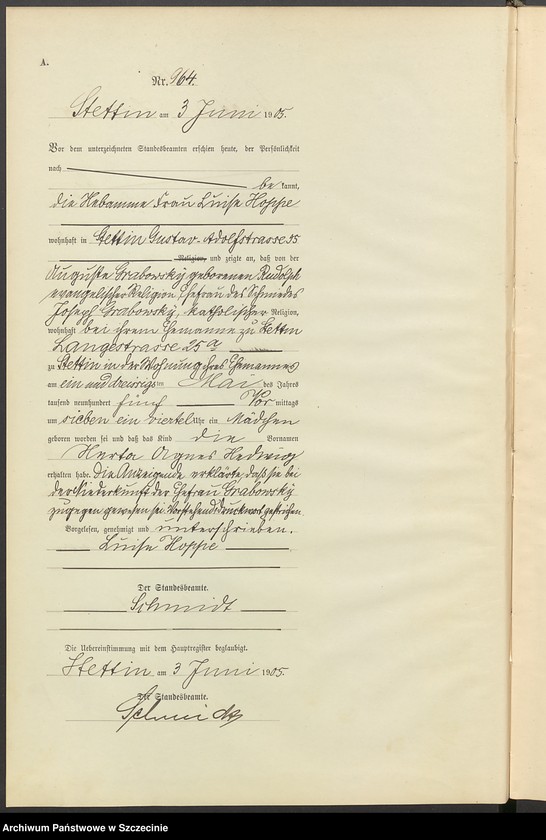 A.
Nr. 964.
Stettin am 3 Juni 1905.
Vor dem unterzeichneten Standesbeamten erschien heute, der Persönlichkeit
nach
be kannt,
die Hebamme Frau Luise Hoppe
wohnhaft in Stettin Gustav-Adolfstrasse 35
Religion, und zeigte an, daß von der
Auguste Grabowsky, geborenen Rudolph
evangelischer Religion, Ehefrau des Schmiedes
Joseph Grabowsky, katholischer Religion,
wohnhaft bei ihrem Ehemanne zu Stettin
Langestrasse 25a
zu Stettin in der Wohnung ihres Ehemannes
am ein und dreizigsten Mai des Jahres
tausend neunhundert fünf Vor mittags
um sieben ein viertel Uhr ein Mädchen
geboren worden sei und daß das Kind die Vornamen
Herta Agnes Hedwig
erhalten habe. Die Anzeigende erklärte, daß sie bei
der Niederkunft der Ehefrau Grabowsky
zugegen gewesen sei. Vorstehend Druckwort gestrichen.
Vorgelesen, genehmigt und unterschrieben.
Luise Hoppe
Der Standesbeamte.
Schmidt
Die Uebereinstimmung mit dem Hauptregister beglaubigt.
Stettin am 3 Juni 1905.
Der Standesbeamte.
Schmidt
Archiwum Państwowe w Szczecinie